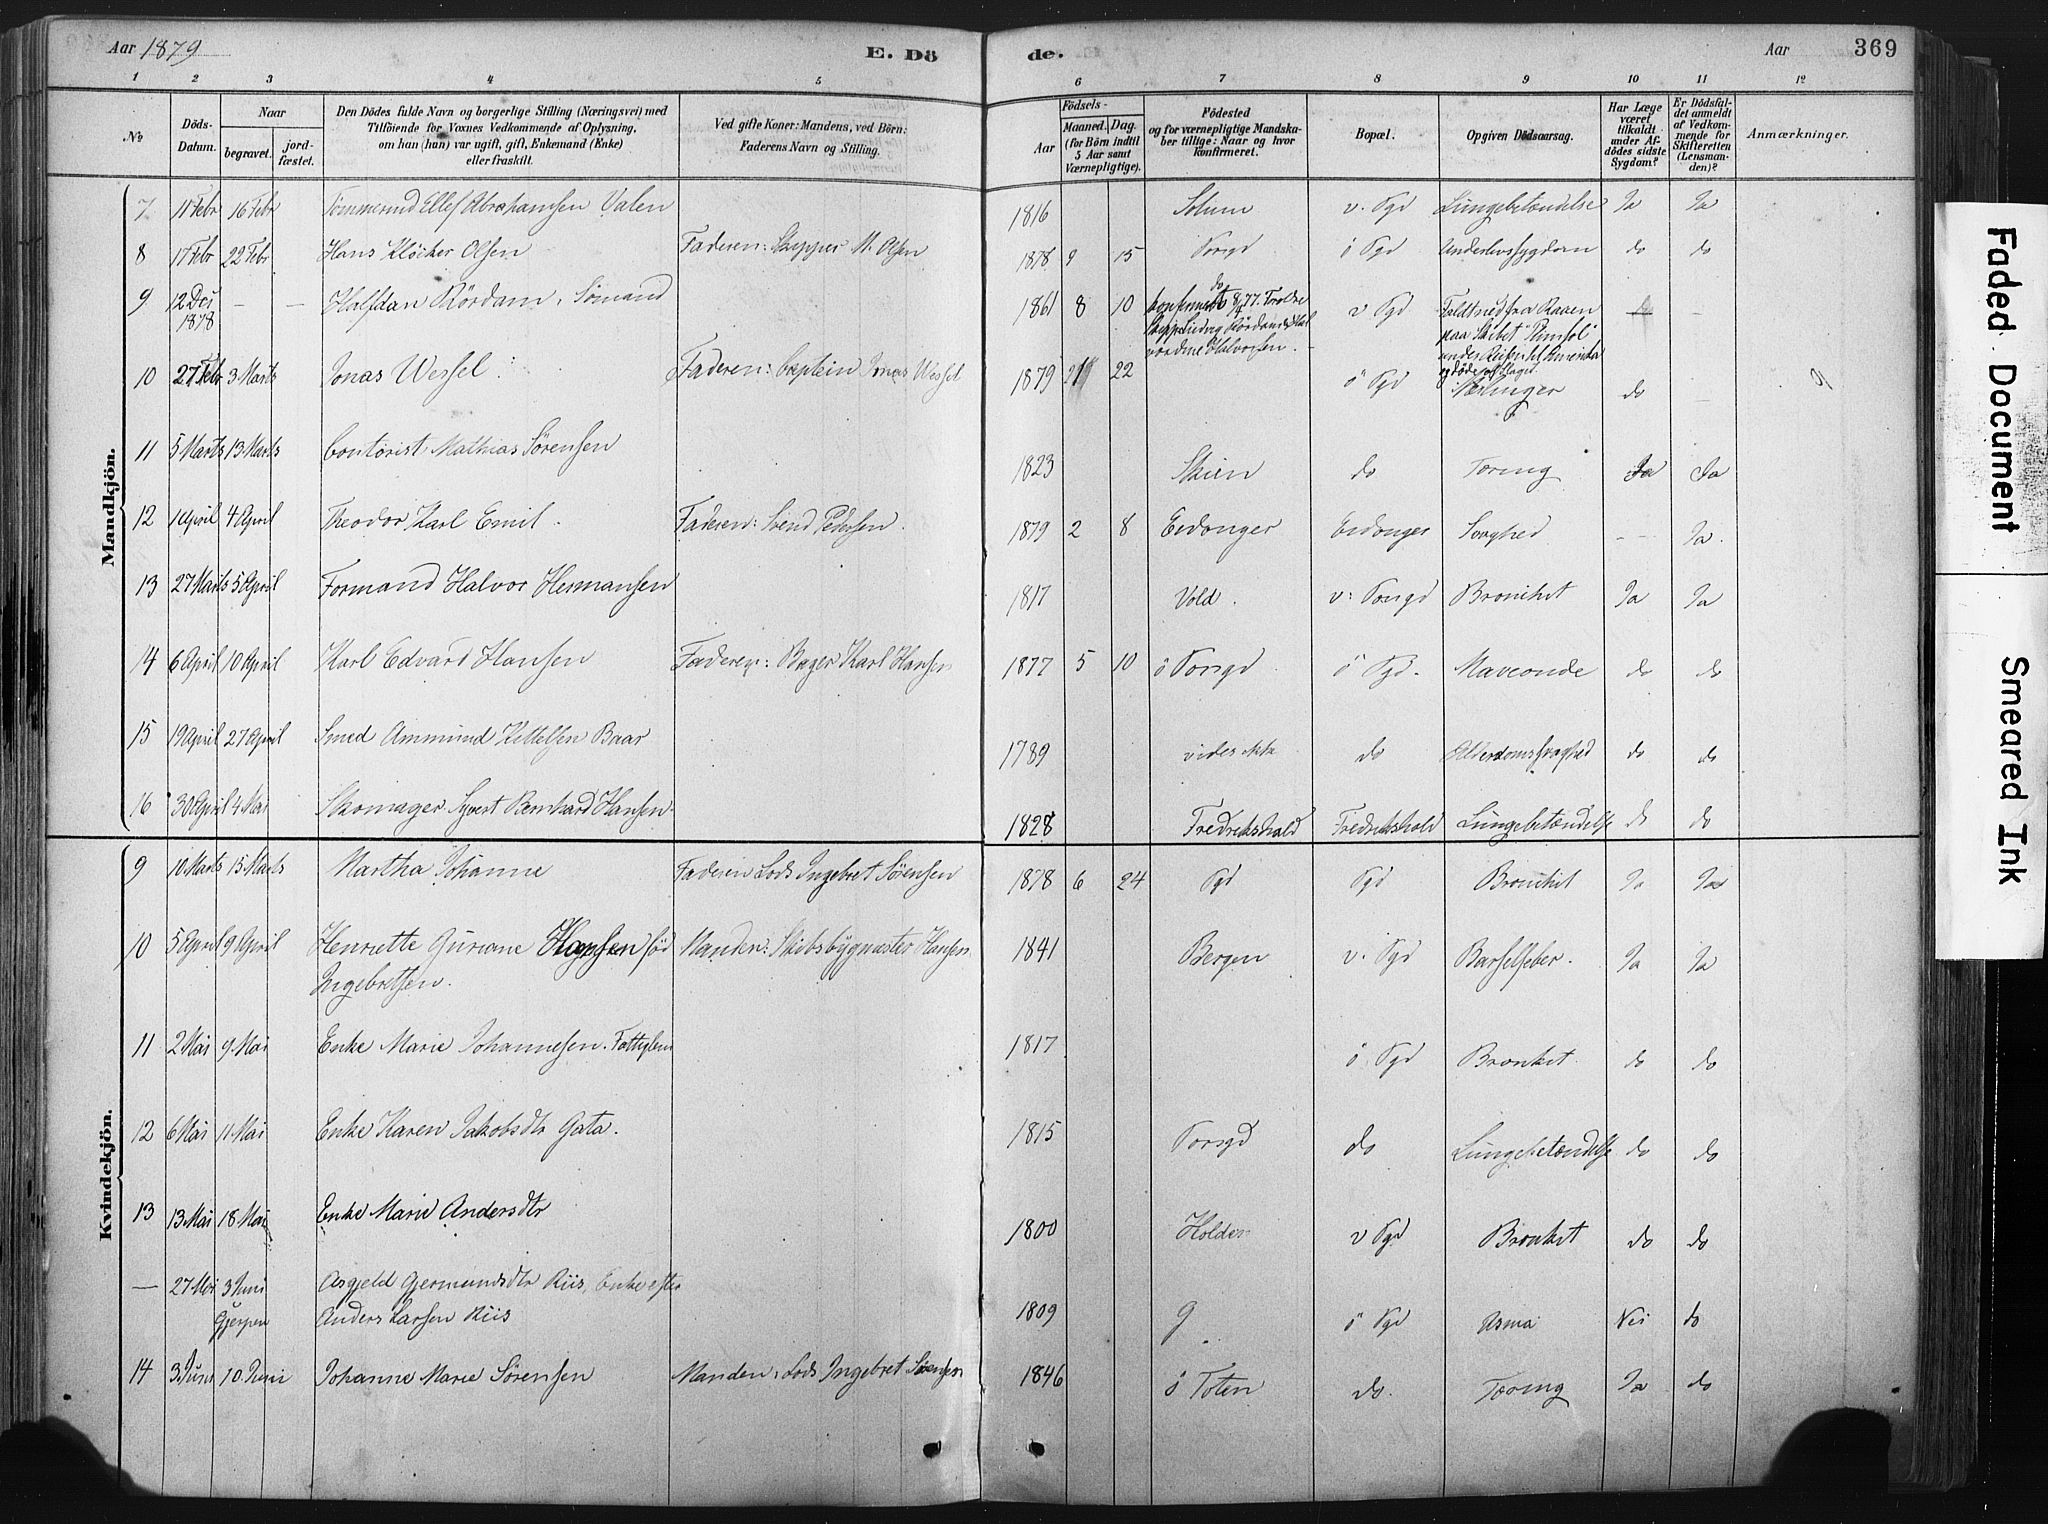 Aar 1879 E. Dö de. Aar 369
1 2 3 4 5 6 7 8 9 10 11 12
No Döds-Datum. Naar begravet. jordfæstet. Den Dödes fulde Navn og borgerlige Stilling (Næringsvei) med Tilföiende for Voxnes Vedkommende af Oplysning, om han (hun) var ugift, gift, Enkemand (Enke) eller fraskilt. Ved gifte Koner: Mandens, ved Börn: Faderens Navn og Stilling. Födsels- Aar Maaned. Dag. (for Börn indtil 5 Aar samt Værnepligtige). Födested og for værnepligtige Mandskaber tillige: Naar og hvor konfirmeret. Bopæl. Opgiven Dödsaarsag. Har Læge været tilkaldt under Afdödes sidste Sygdom? Er Dödsfaldet anmeldt af Vedkommende for Skifteretten (Lensmanden)? Anmærkninger.
Mandkjön.
7 11 Febr 16 Febr Tømmermd Ellef Abrahamsen Valen 1816 Solum v. Pgd Lungebetændelse Ja Ja
8 17 Febr 22 Febr Hans Klöcker Olsen Faderen: Skipper M. Olsen 1878 9 15 Porsgd ö Pgd Underlivssygdom do do
9 12 Des 1878 — — Halfdan Rördam, Sömand 1861 8 10 do v Pgd Faldt ned fra Raaen paa Skibet
10 27 Febr 3 Marts Jonas Wessel Faderen: Captein Jonas Wessel 1879 22 ö Pgd do
11 5 Marts 13 Marts Contorist Mathias Sørensen 1823 Skien do Tæring Ja Ja
12 1 April 4 April Theodor Karl Emil Faderen: Svend Pedersen. 1879 2 8 Eidanger Eidanger Svaghed — Ja.
13 27 Marts 5 April Formand Halvor Hermansen 1817 Vold. v: Porsgd Bronkit Ja Ja
14 6 April 10 April Karl Edvard Hansen Faderen: Bager Karl Hansen 1877 5 10 ö Porsgd ö Pgd. Maveonde do do
15 19 April 27 April Smed Ammund Kittelsen Baar 1789 vides ikke do Alderdomssvaghed do do
16 30 April 4 Mai Skomager Syvert Bernhard Hansen 1828 Fredrikshald Fredrikshald Lungebetændelse do do
Kvindekjön.
9 10 Marts 15 Marts Martha Johanne Faderen Lods Ingebret Sørensen 1878 6 24 Pgd Pgd Bronkit Ja Ja
10 5 April 9 April Henriette Guriane Hansen fød Manden: Skibsbygmester Hansen 1841 Bergen v. Pgd Barselfeber. Ja Ja
Ingebretsen.
11 2 Mai 9 Mai Enke Marie Johannesen. Fattiglem 1817 ö Pgd Bronkit do do
12 6 Mai 11 Mai Enke Karen Jakobsdtr Gata. 1815 Porsgd do Lungebetændelse do do
13 13 Mai 18 Mai Enke Marie Andersdtr 1800 Holden v Pgd Bronkit do do
— 27 Mai 3 Juni Asgjeld Gjermundsdtr Riis, Enke efter
Gjerpen Anders Larsen Riis 1809 G ö Pgd Asma Nei do
14 3 Juni 10 Juni Johanne Marie Sørensen Manden: Lods Ingebret Sørensen 1846 ö Toten do. Tæring Ja do
Faded Document
Smeared Ink